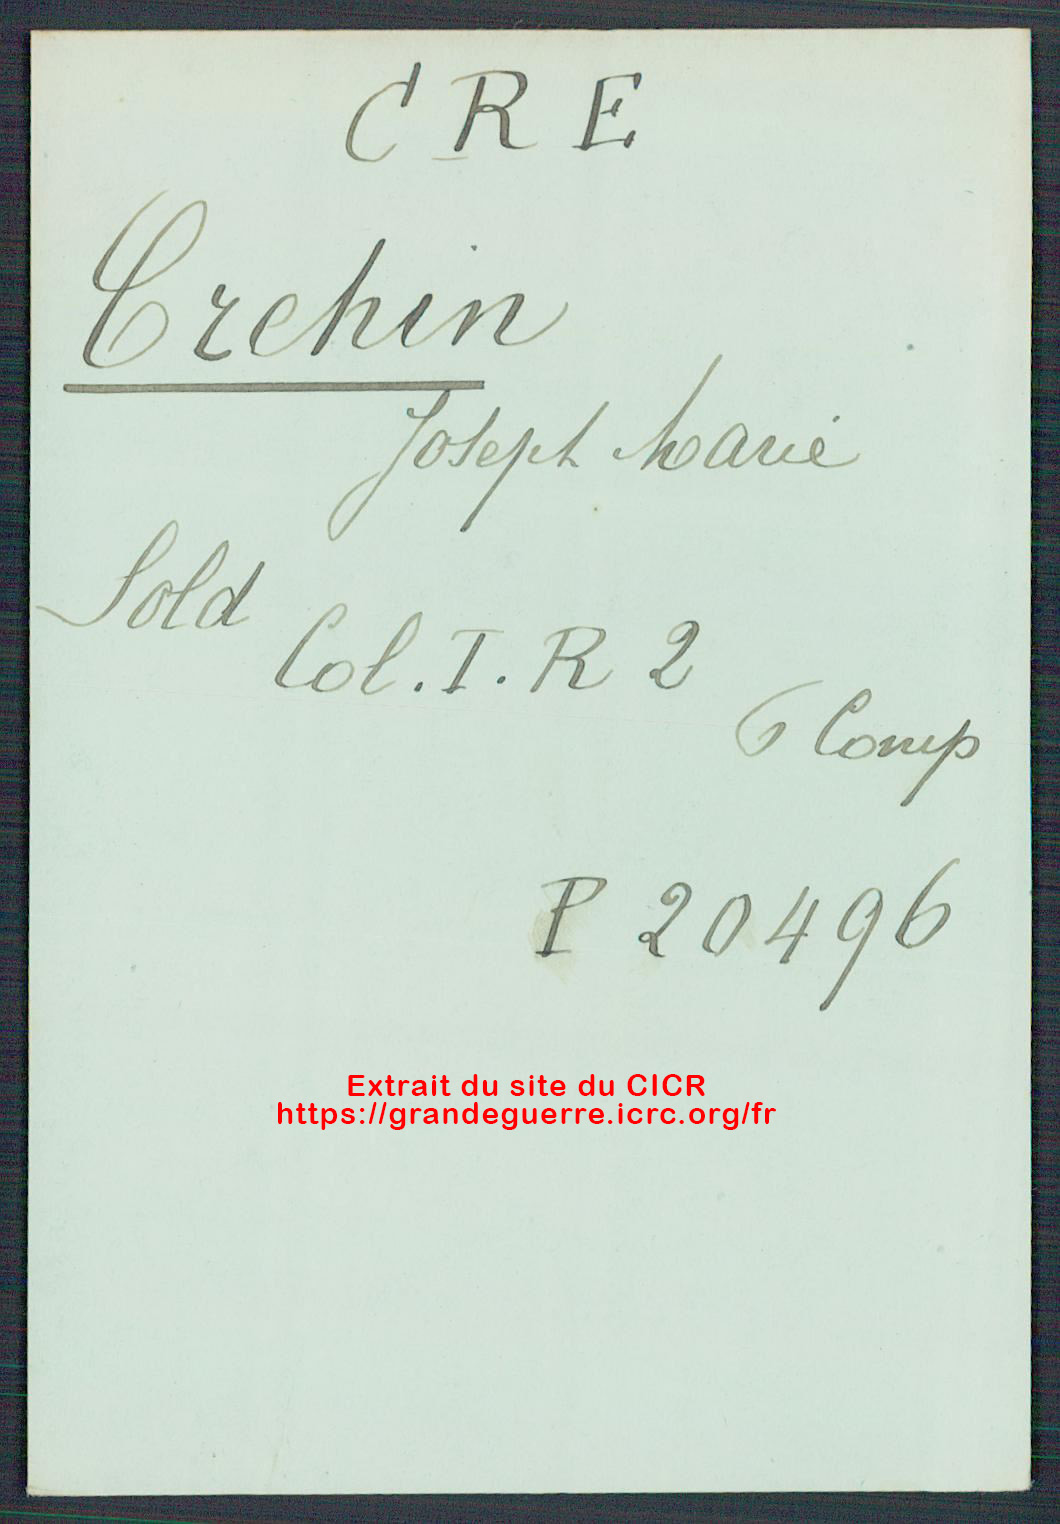 C R E
Crehin
Joseph Marie
Sold
Col. I. R 2
6 Comp
P 20496
Extrait du site du CICR
https://grandeguerre.icrc.org/fr